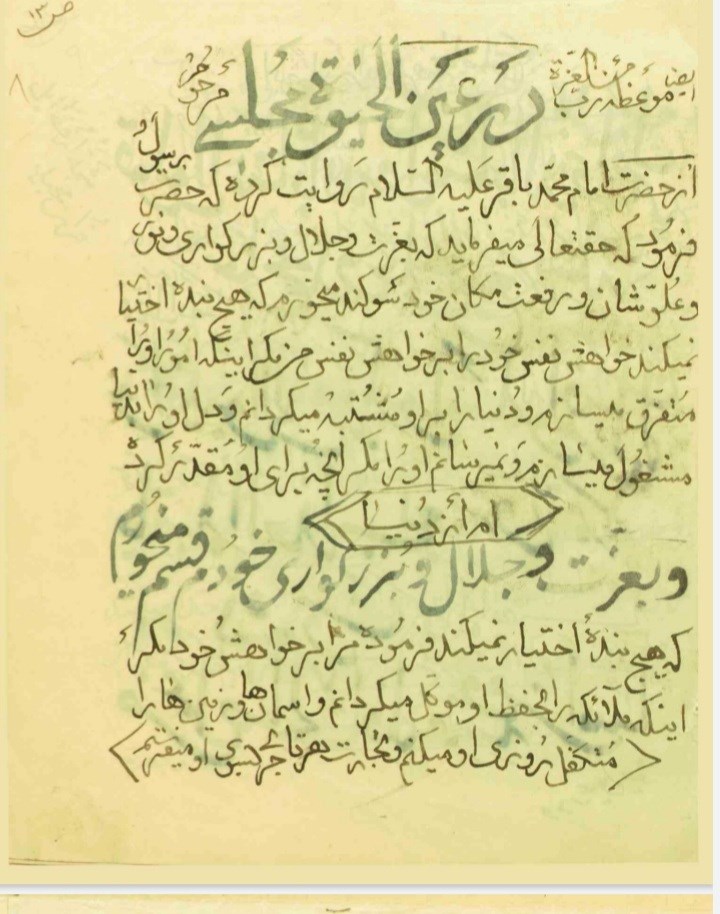 ص ۱۳
ایضاً موعظه رب العزة
در عین الحیوة مجلسی
مرحوم
از حضرت امام محمد باقر علیه السلام روایت کرده که حضرت رسول
فرمود که حقتعالی میفرماید که بعزت و جلال و بزرگواری و نور
و علوّ شان و رفعت مکان خود سوگند میخورم که هیچ بندهٔ اختیار
نمیکند خواهش نفس خود را بر خواهش نفس من مگر اینکه امور او را
متفرق میسازم و دنیا را بر او مشتبه میگردانم و دل او را بدنیا
مشغول میسازم و نمیرسانم او را مگر آنچه برای او مقدّر کرده
ام از دنیا
و بعزت و جلال و بزرگواری خود قسم میخورم
که هیچ بندهٔ اختیار نمیکند فرموده مرا بر خواهش خود مگر
اینکه ملآئکه را بحفظ او موکل میگردانم و اسمان ها و زمین ها را
متکفل روزی او میکنم و تجارت هر تاجر بسوی او میفرستم